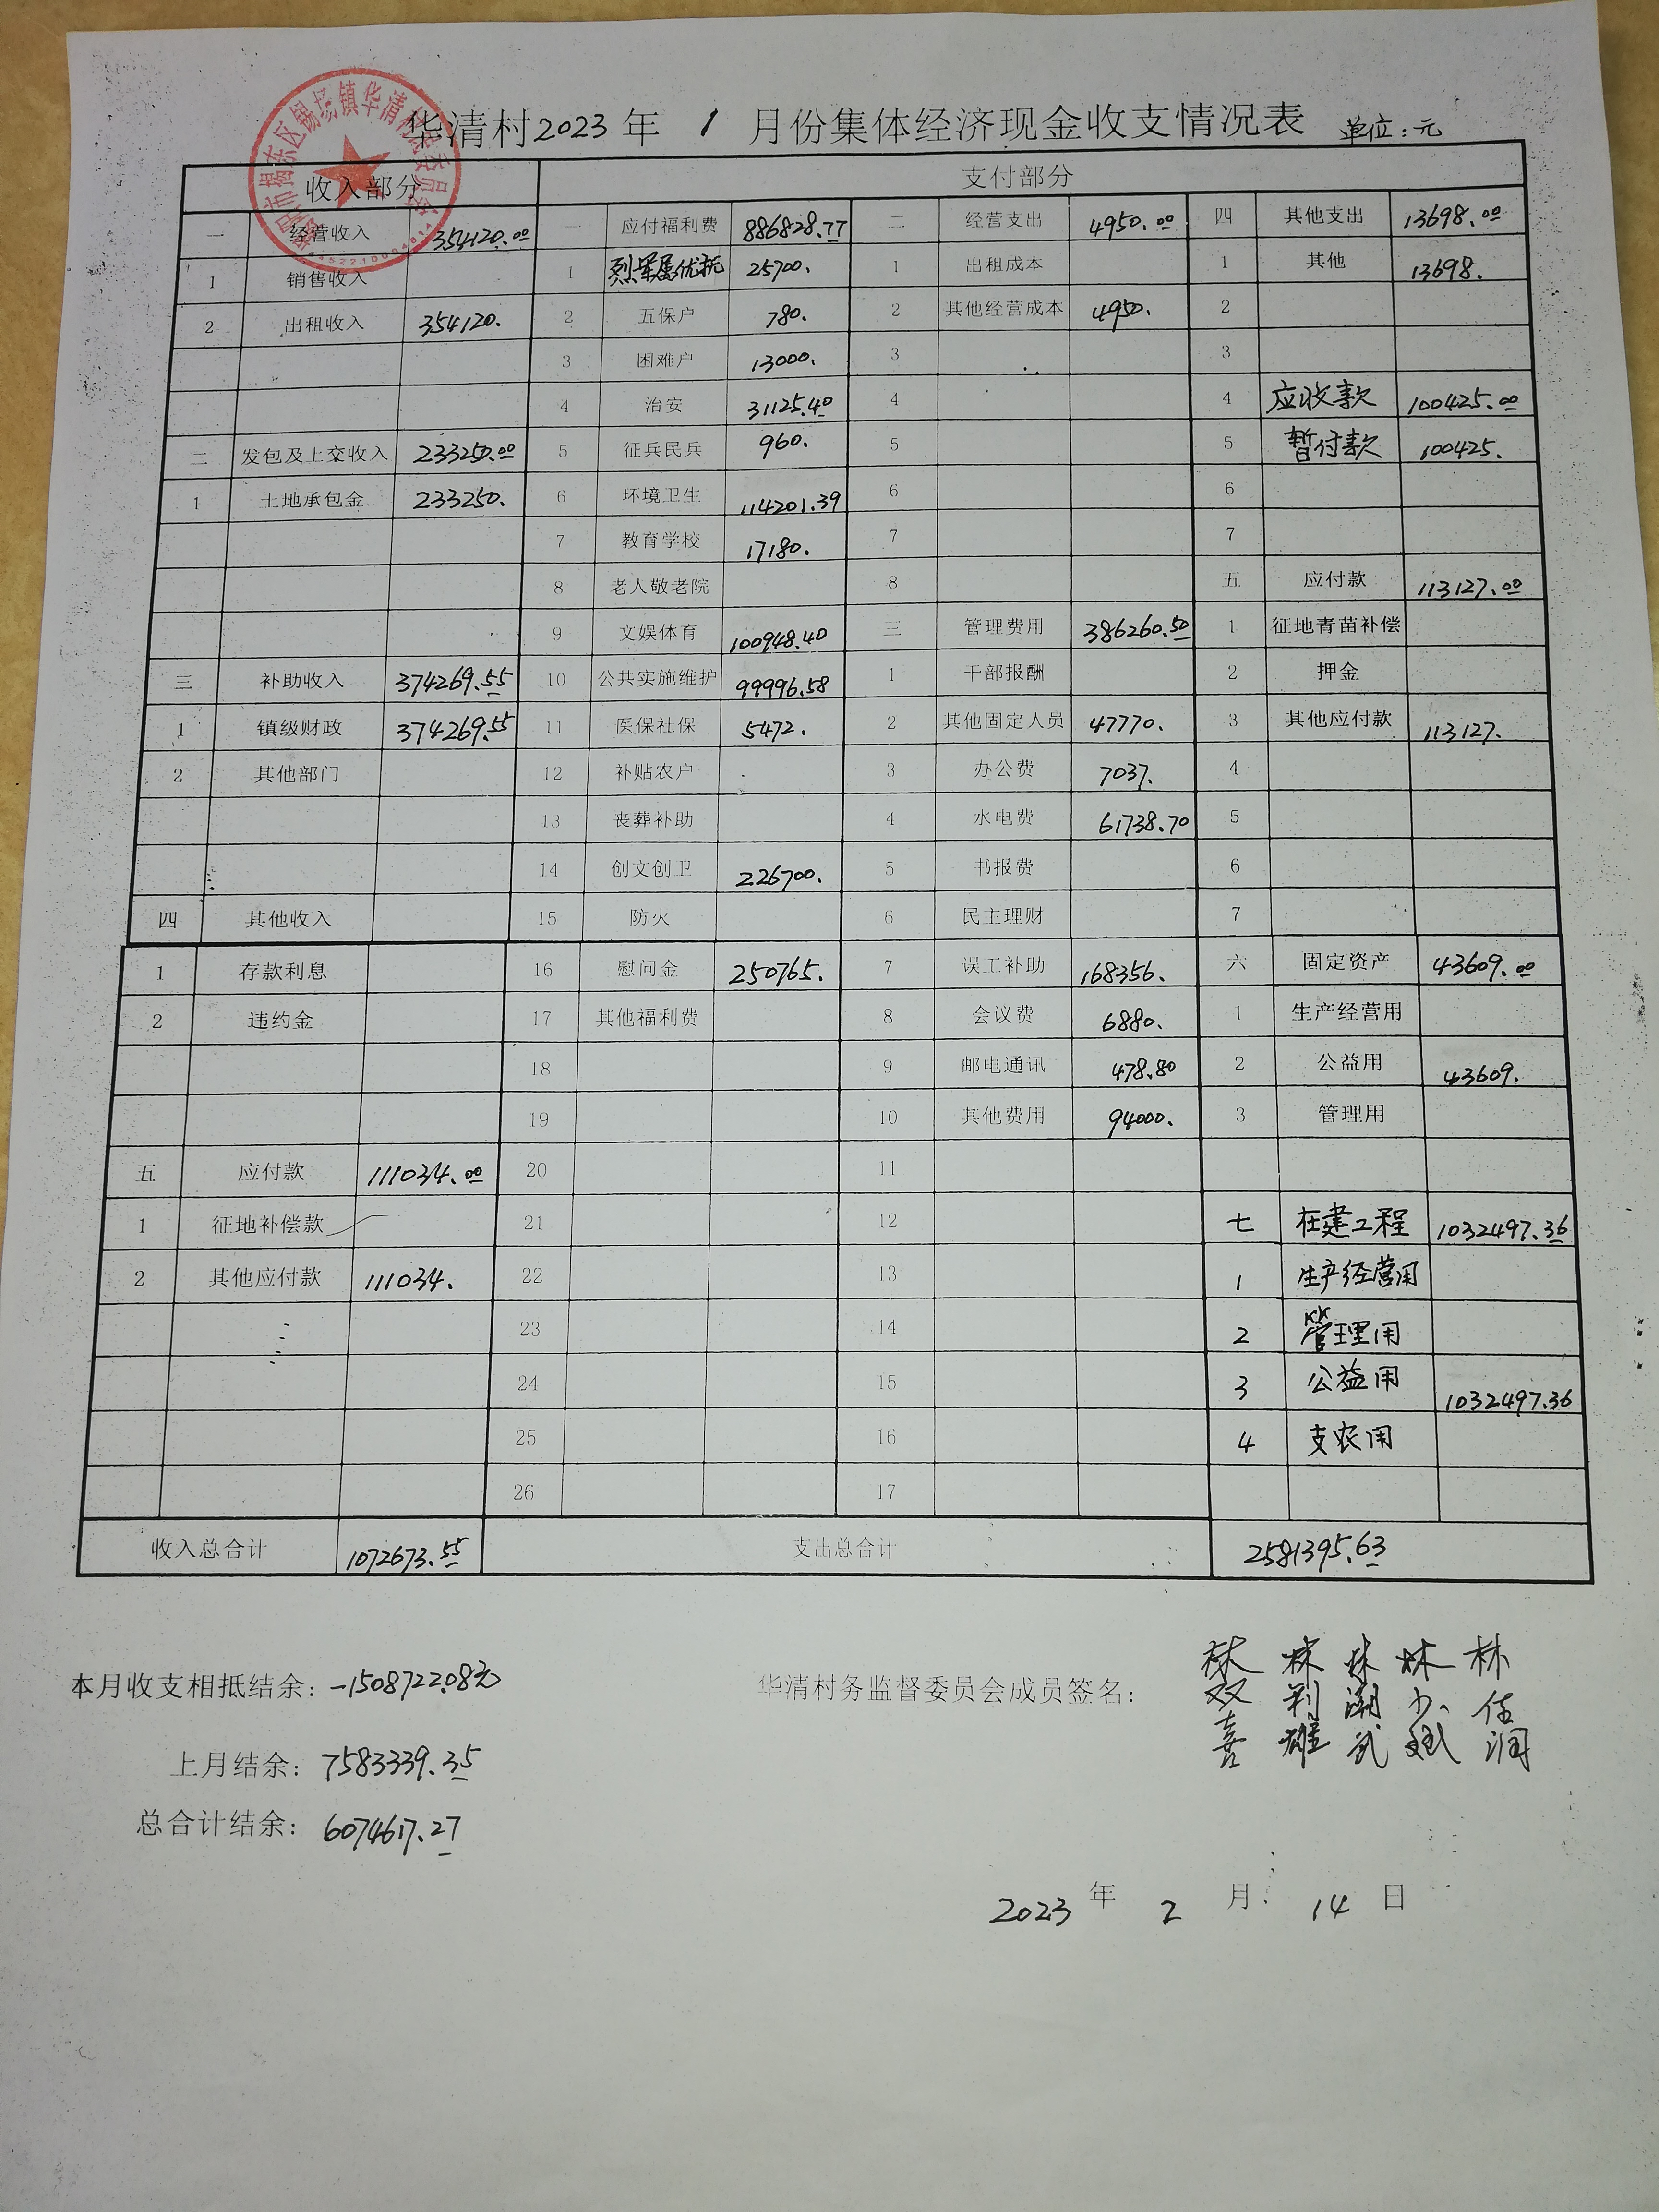 华清村2023年 1 月份集体经济现金收支情况表 单位:元
收入部分 支付部分
一 经营收入 354120.00 一 应付福利费 886828.77 二 经营支出 4950.00 四 其他支出 13698.00
1 销售收入 1 烈军属优抚 25700. 1 出租成本 1 其他 13698.
2 出租收入 354120. 2 五保户 780. 2 其他经营成本 4950. 2
3 困难户 13000. 3 3
4 治安 31125.40 4 4 应收款 100425.00
二 发包及上交收入 233250.00 5 征兵民兵 960. 5 5 暂付款 100425.
1 土地承包金 233250. 6 环境卫生 114201.39 6 6
7 教育学校 17180. 7 7
8 老人敬老院 8 五 应付款 113127.00
9 文娱体育 100948.40 三 管理费用 386260.50 1 征地青苗补偿
三 补助收入 374269.55 10 公共实施维护 99996.58 1 干部报酬 2 押金
1 镇级财政 374269.55 11 医保社保 5472. 2 其他固定人员 47770. 3 其他应付款 113127.
2 其他部门 12 补贴农户 3 办公费 7037. 4
13 丧葬补助 4 水电费 61738.70 5
14 创文创卫 226700. 5 书报费 6
四 其他收入 15 防火 6 民主理财 7
1 存款利息 16 慰问金 250765. 7 误工补助 168356. 六 固定资产 43609.00
2 违约金 17 其他福利费 8 会议费 6880. 1 生产经营用
18 9 邮电通讯 478.80 2 公益用 43609.
19 10 其他费用 94000. 3 管理用
五 应付款 111034.00 20 11
1 征地补偿款 21 12 七 在建工程 1032497.36
2 其他应付款 111034. 22 13 1 生产经营用
23 14 2 管理用
24 15 3 公益用 1032497.36
25 16 4 支农用
26 17
收入总合计 1072673.55 支出总合计 2581395.63
本月收支相抵结余:-1508722.08元 华清村务监督委员会成员签名:
林双喜 林利雄 林潮武 林少斌 林佳润
上月结余:7583339.35
总合计结余:6074617.27
2023 年 2 月 14 日